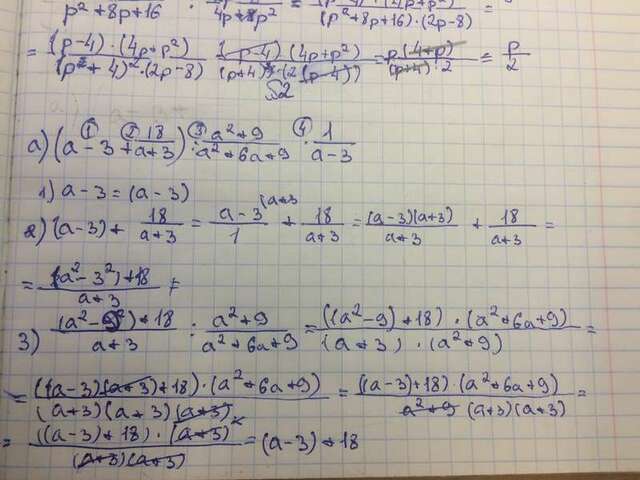 p²+8p+16 4p+8p² (p²+8p+16)·(2p-8)
= (p-4)·(4p+p²) / (p²+4)²·(2p-8) = (p-4)(4p+p²) / (p+4)²·(2(p-4)) = p(4+p) / (p+4)·2 = p/2
а) (a-3 + 18/a+3) : a²+9 / a²+6a+9 · 1/a-3
1) a-3 = (a-3)
2) (a-3) + 18/a+3 = a-3/1 + 18/a+3 = (a-3)(a+3)/a+3 + 18/a+3 =
= (a²-3²)+18 / a+3
3) (a²-9)+18 / a+3 : a²+9 / a²+6a+9 = ((a²-9)+18)·(a²+6a+9) / (a+3)·(a²+9) =
= ((a-3)(a+3)+18)·(a²+6a+9) / (a+3)(a+3)(a+3) = ((a-3)+18)·(a²+6a+9) / a²+9 (a+3)(a+3) =
= ((a-3)+18)·(a+3) / (a+3)(a+3) = (a-3)+18